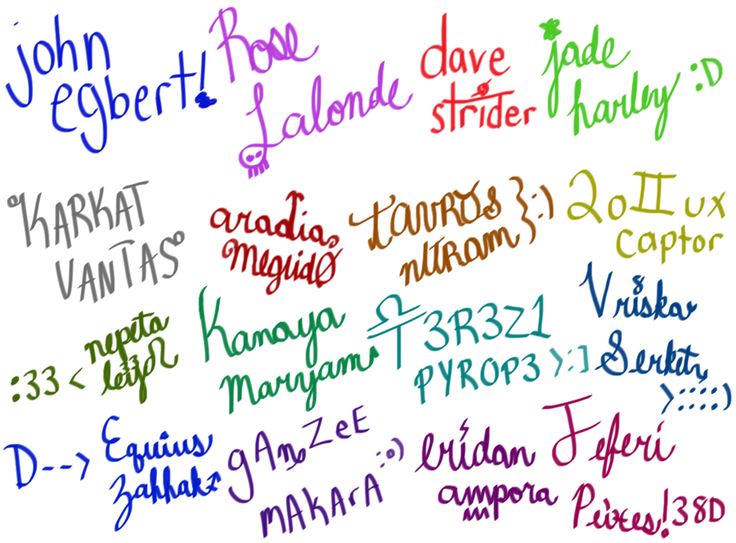 john
egbert!
Rose
Lalonde
dave
strider
jade
harley :D
KARKAT
VANTAS
aradia
megid0
tAVROS
nITRAM }:)
2oIIux
captor
:33 < nepeta
leijon
Kanaya
Maryam
T3R3Z1
PYROP3 >:]
Vriska
Serket
>::::)
D--> Equius
Zahhak
gAmZeE
mAKArA :o)
eridan
ampora
Feferi
Peixes! 38D